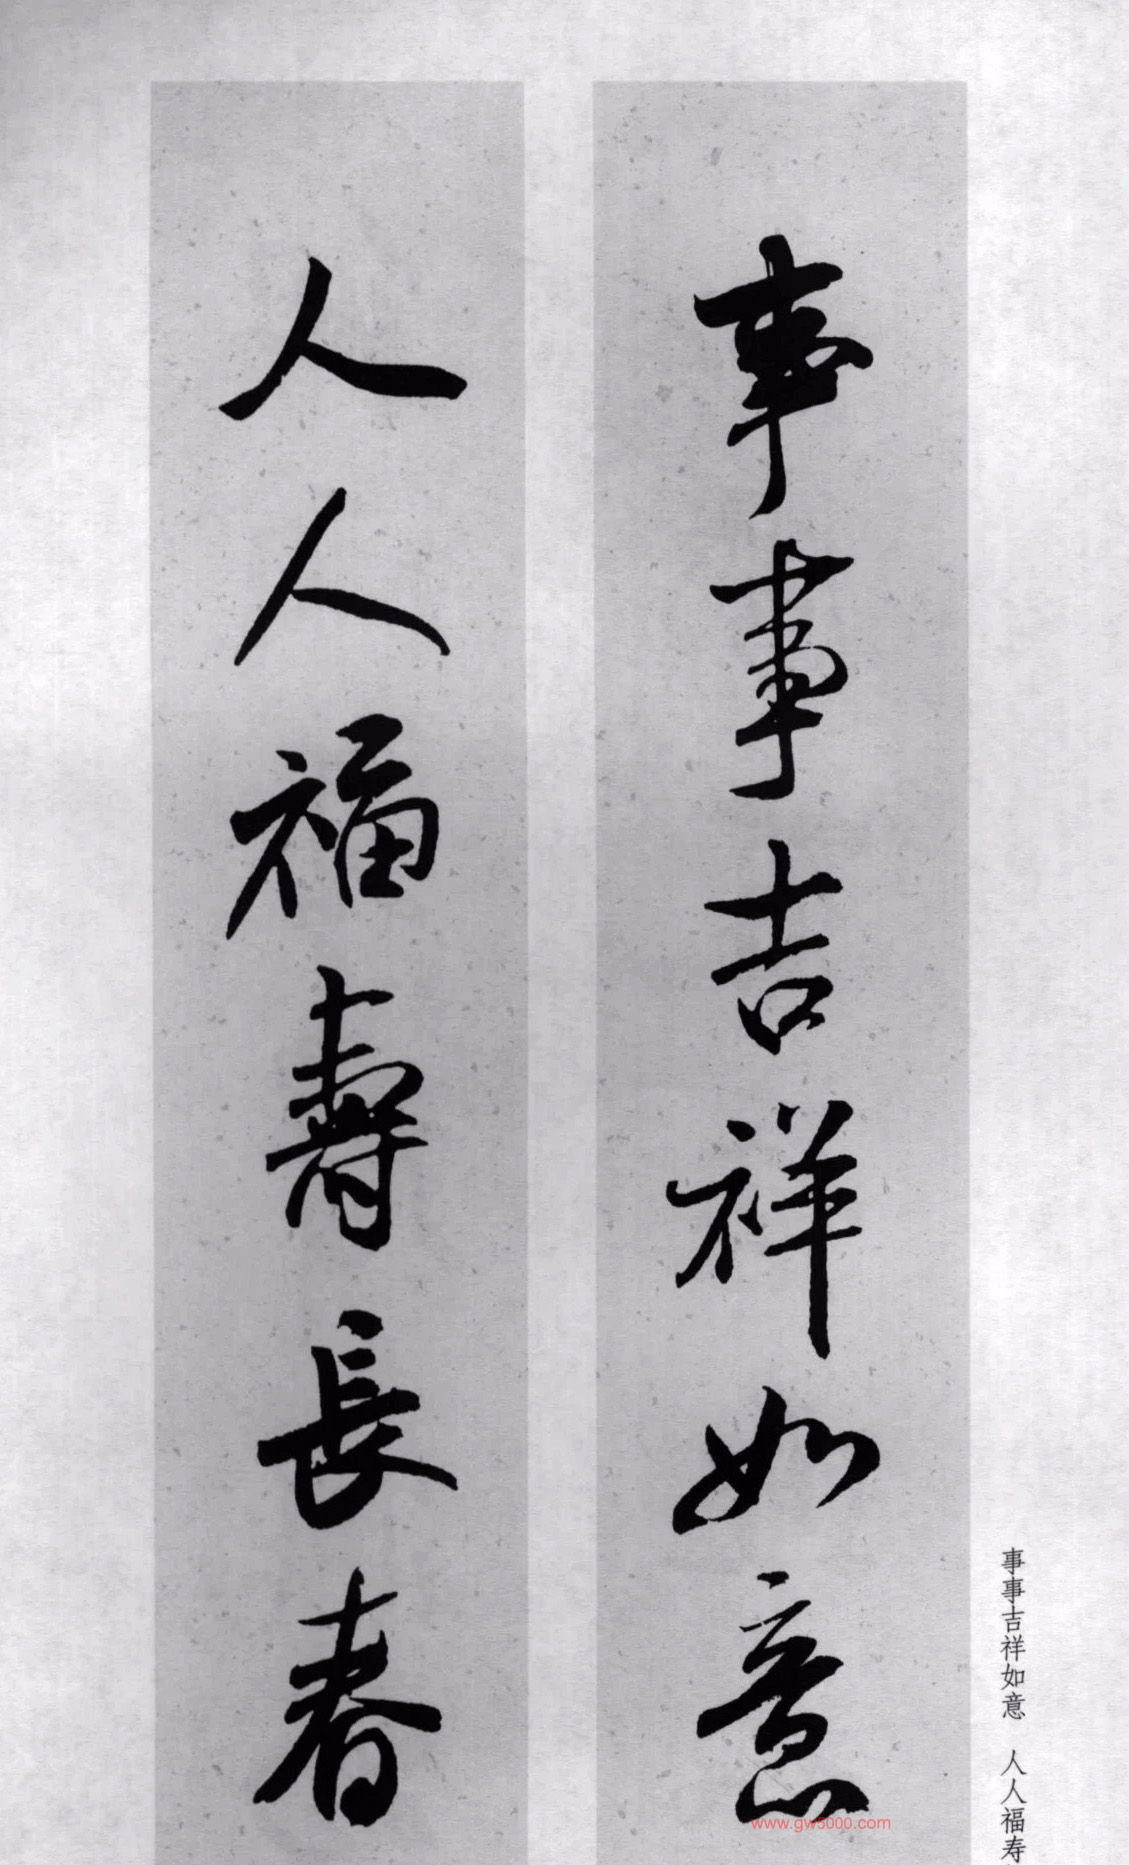 事事吉祥如意
人人福壽長春
事事吉祥如意 人人福寿
www.gw5000.com